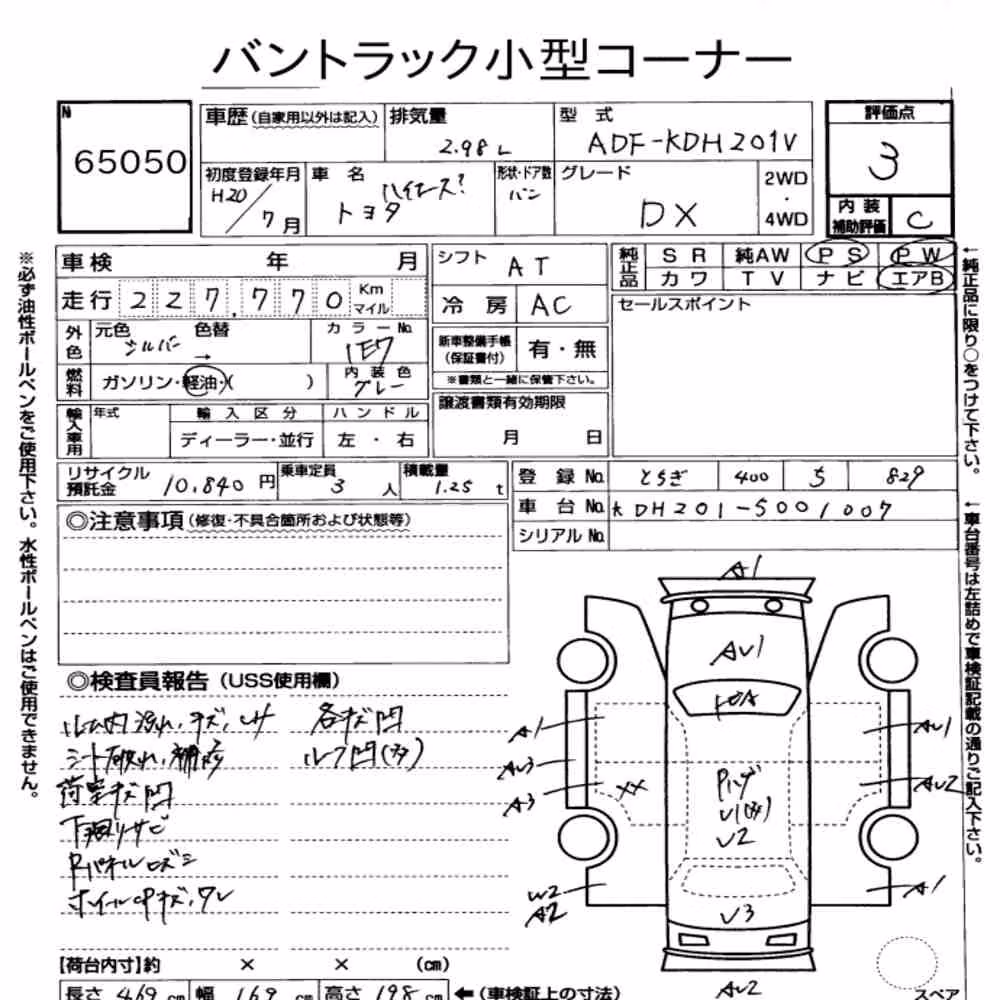 バントラック小型コーナー
№ 65050
車歴(自家用以外は記入) 排気量 2.98 L 型式 ADF-KDH201V 評価点 3
初度登録年月 H20/7月 車名 トヨタ ハイエース? 形状・ドア数 バン グレード DX 2WD・4WD 内装補助評価 C
車検 年 月 シフト AT 純正品 SR 純AW PS PW
カワ TV ナビ エアB
走行 227,770 Km マイル 冷房 AC セールスポイント
外色 元色 シルバー 色替 → カラーNo. 1E7
新車整備手帳(保証書付) 有・無
※書類と一緒に保管下さい。
燃料 ガソリン・軽油・( ) 内装色 グレー
譲渡書類有効期限 月 日
輸入車用 年式 輸入区分 ハンドル
ディーラー・並行 左・右
リサイクル預託金 10,840円 乗車定員 3人 積載量 1.25 t
登録No. とちぎ 400 う 829
車台No. KDH201-5001007
シリアルNo.
◎注意事項(修復・不具合箇所および状態等)
◎検査員報告(USS使用欄)
ルーム内汚れ、キズ、
シート破れ、補修
荷室キズ凹
下廻りサビ
Rパネル
ホイールcpキズ、ワレ
各キズ凹
ルーフ凹(多)
A1
AU1
A1 AU1
AU3
A3 XX AU2
U2
W2
A2 A1
U3
AU2
スペア
【荷台内寸】約 × × (cm)
長さ 469 cm 幅 169 cm 高さ 198 cm ←(車検証上の寸法)
※必ず油性ボールペンをご使用下さい。水性ボールペンはご使用できません。
←純正品に限り○をつけて下さい。
←車台番号は左詰めで車検証記載の通りご記入下さい。